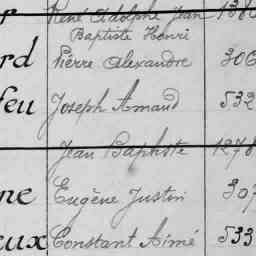 René Adolphe Jean 1386
Baptiste Henri
rd Pierre Alexandre 306
feu Joseph Amand 532
Jean Baptiste 1278
ne Eugène Justin 307
eux Constant Aimé 533